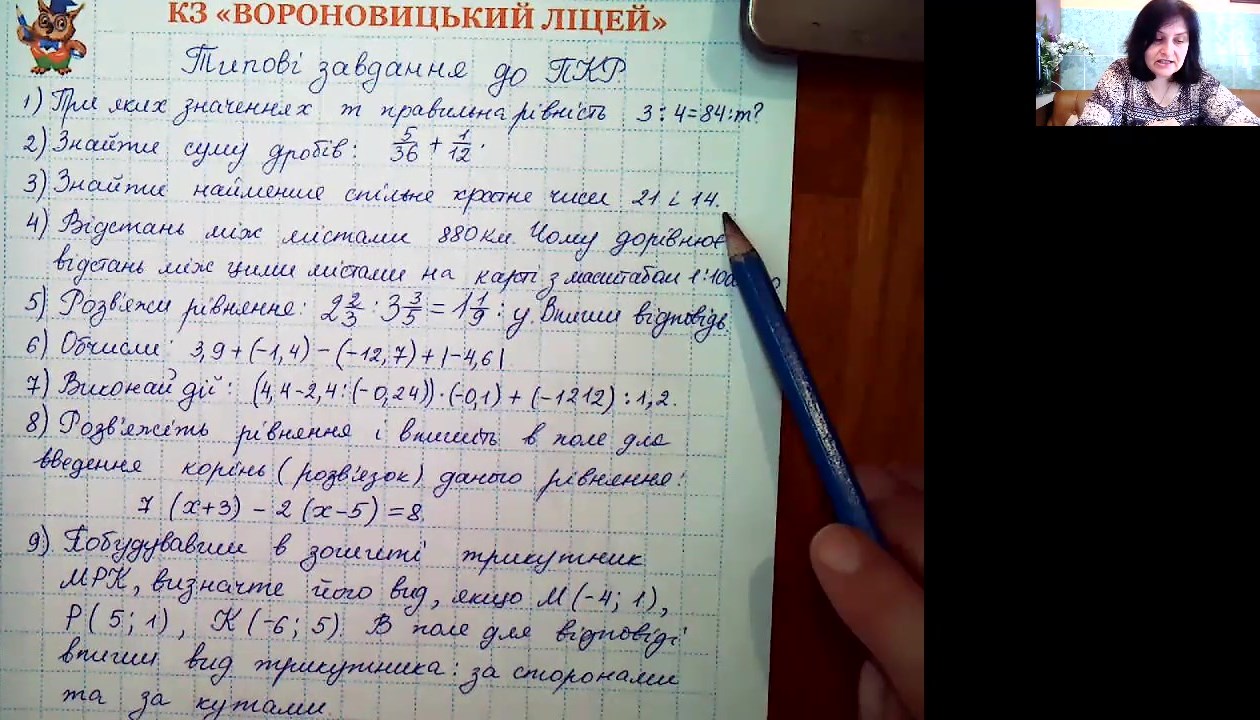 КЗ «ВОРОНОВИЦЬКИЙ ЛІЦЕЙ»
Типові завдання до ПКР
1) При яких значеннях m правильна рівність 3 : 4 = 84 : m?
2) Знайти суму дробів: 5/36 + 1/12.
3) Знайти найменше спільне кратне чисел 21 і 14.
4) Відстань між містами 880 км. Чому дорівнює
відстань між цими містами на карті з масштабом
5) Розв'яжи рівняння: 2 2/3 : 3 3/5 = 1 1/9 : y. Впиши відповідь.
6) Обчисли: 3,9 + (-1,4) - (-12,7) + |-4,6|
7) Виконай дії: (4,4 - 2,4 : (-0,24)) · (-0,1) + (-1212) : 1,2.
8) Розв'яжіть рівняння і впишіть в поле для
введення корінь (розв'язок) даного рівняння:
7 (x+3) - 2 (x-5) = 8.
9) Побудувавши в зошиті трикутник
МРК, визначте його вид, якщо М (-4; 1),
Р (5; 1), К (-6; 5). В поле для відповіді
впиши вид трикутника: за сторонами
та за кутами.